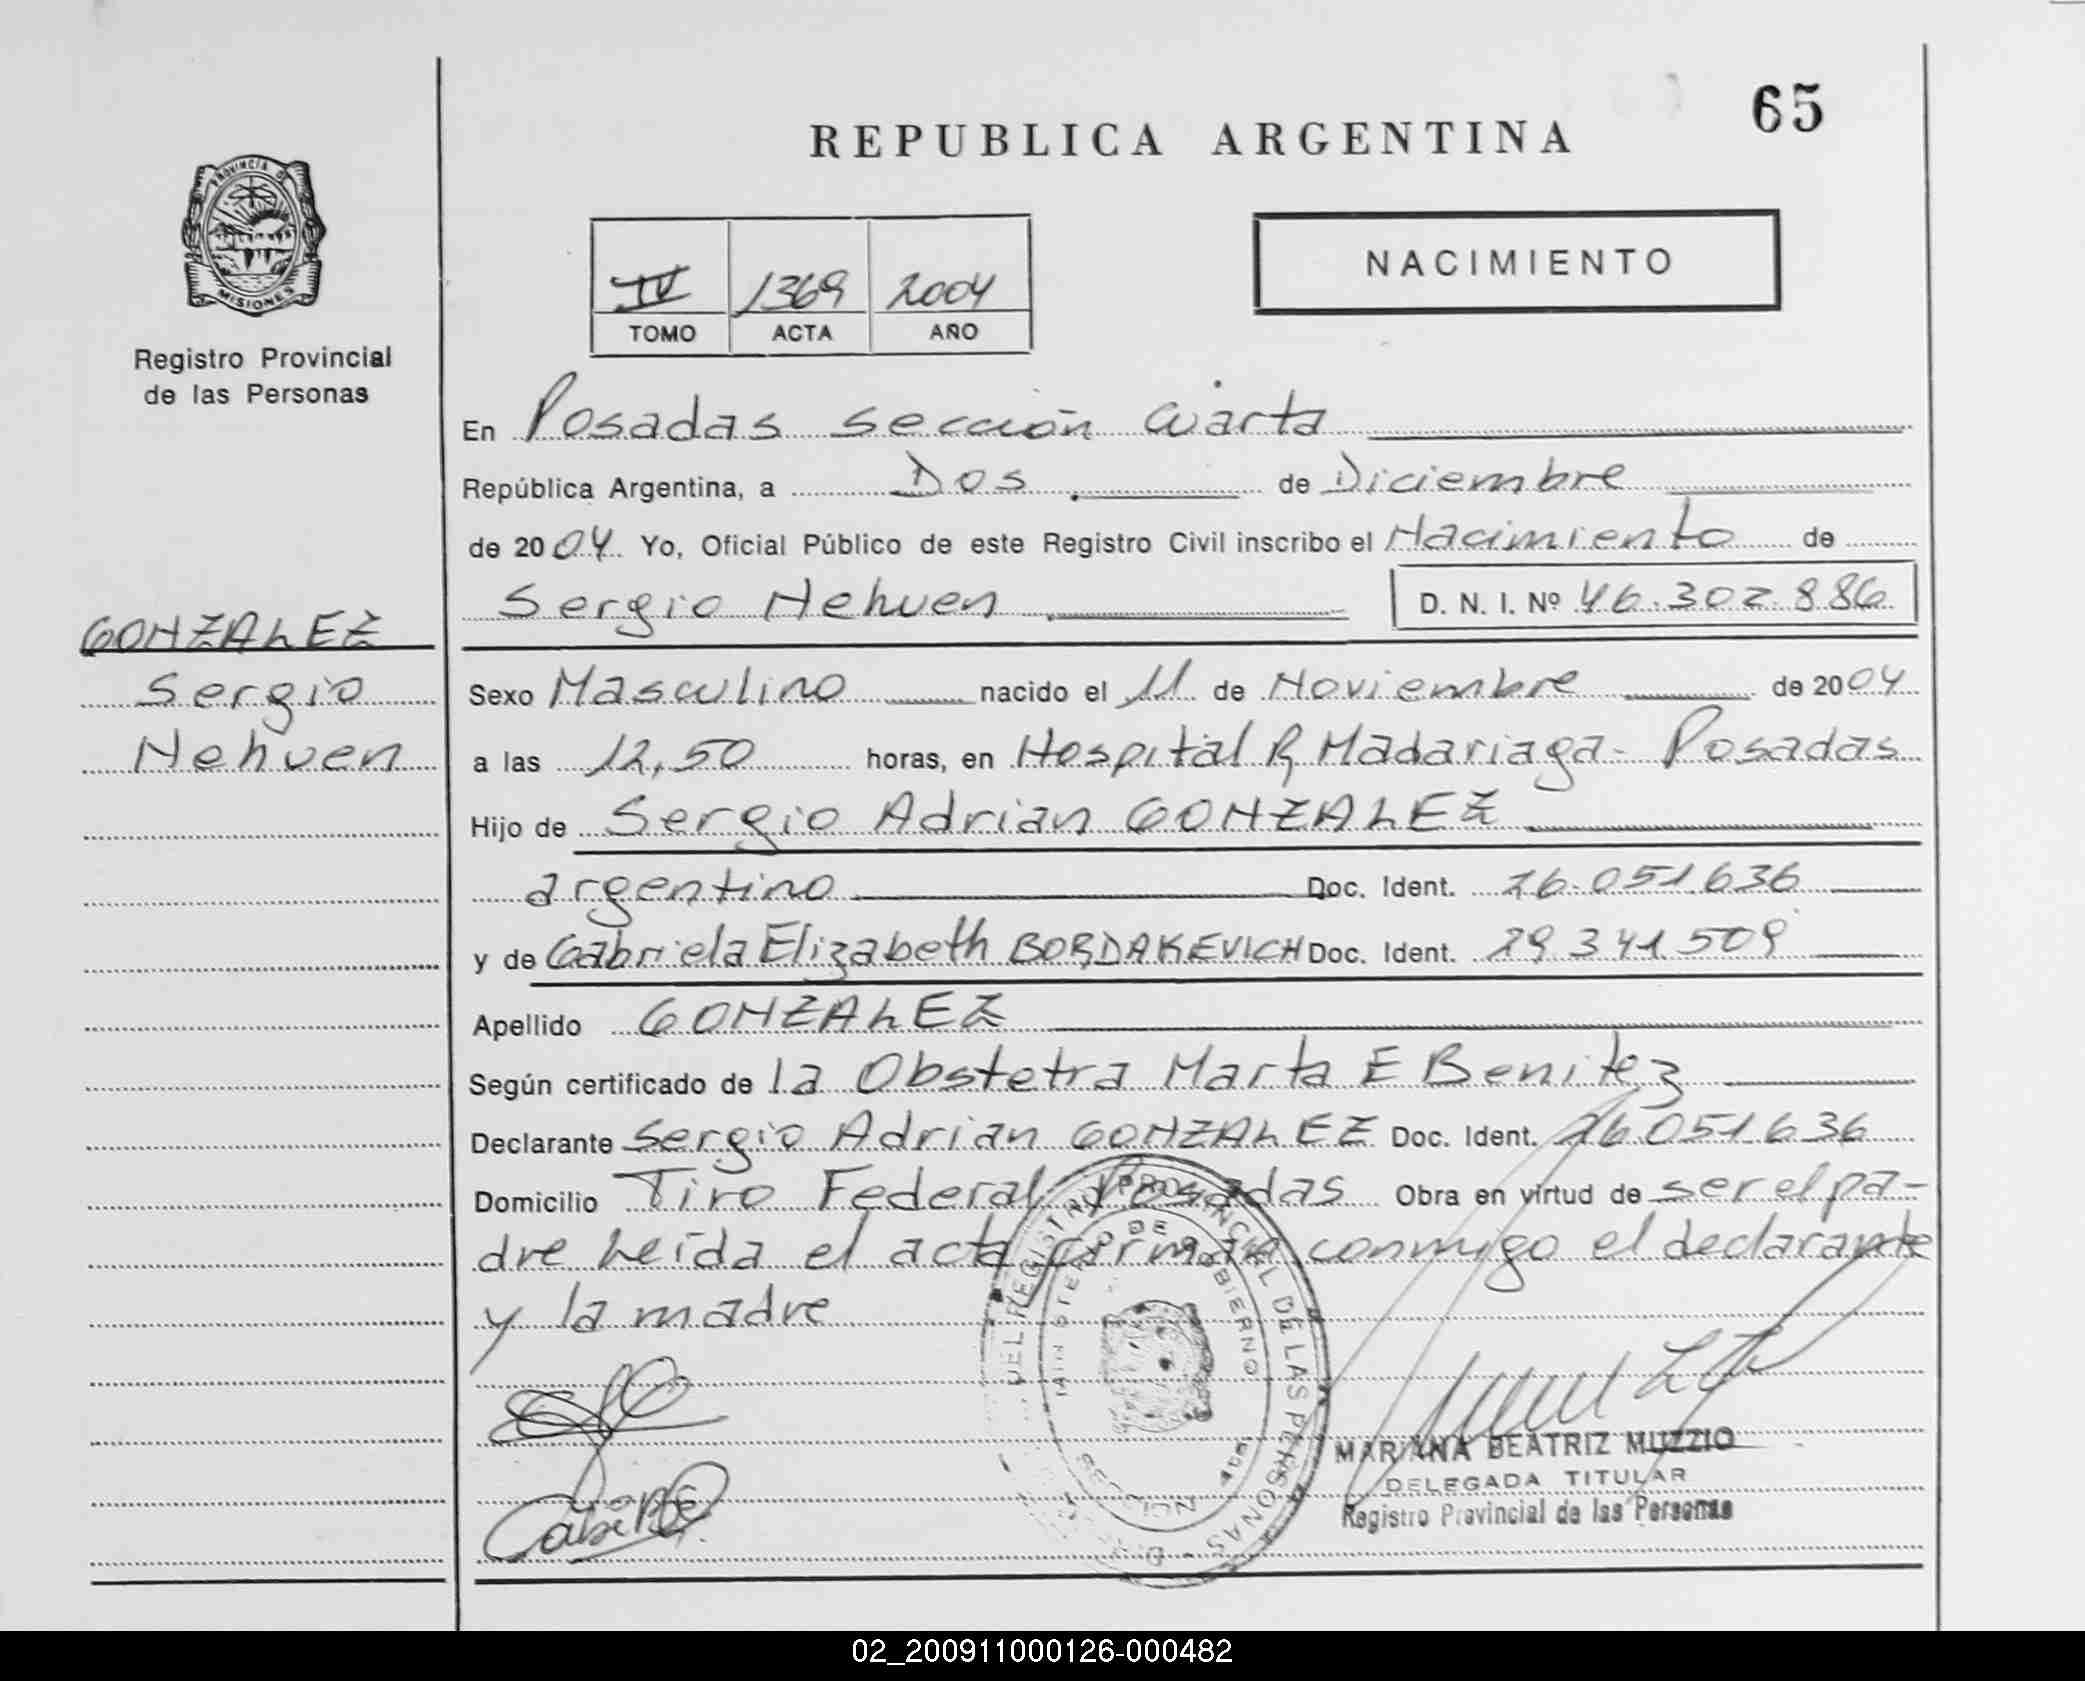 65
REPUBLICA ARGENTINA
PROVINCIA DE
MISIONES
Registro Provincial
de las Personas
IV 1369 2004
TOMO ACTA AÑO
NACIMIENTO
En Posadas sección Cuarta
República Argentina, a Dos de Diciembre
de 2004 Yo, Oficial Público de este Registro Civil inscribo el Nacimiento de
Sergio Nehuen D. N. I. Nº 46.302.886
GONZALEZ
Sergio
Nehuen
Sexo Masculino nacido el 11 de Noviembre de 2004
a las 12,50 horas, en Hospital R Madariaga- Posadas
Hijo de Sergio Adrian GONZALEZ
argentino Doc. Ident. 26.051.636
y de Gabriela Elizabeth BORDAKEVICH Doc. Ident. 29.341.509
Apellido GONZALEZ
Según certificado de la Obstetra Marta E Benitez
Declarante Sergio Adrian GONZALEZ Doc. Ident. 26.051.636
Domicilio Tiro Federal Posadas Obra en virtud de ser el pa-
dre Leída el acta firman conmigo el declarante
y la madre
DEL REGISTRO PROVINCIAL DE LAS PERSONAS
MINISTERIO DE GOBIERNO
MARIANA BEATRIZ MUZZIO
DELEGADA TITULAR
Registro Provincial de las Personas
02_200911000126-000482